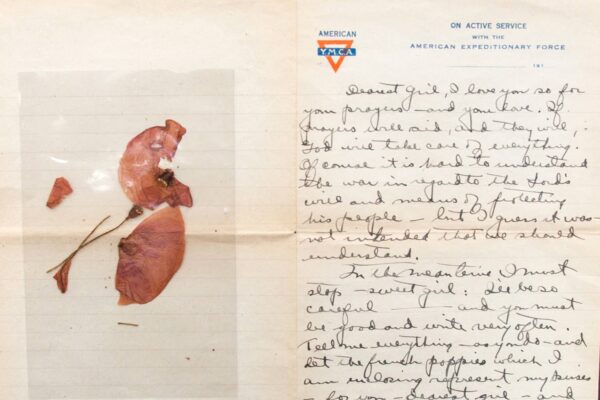 AMERICAN
Y.M.C.A.
ON ACTIVE SERVICE
WITH THE
AMERICAN EXPEDITIONARY FORCE
191
Dearest girl, I love you so for
your prayers - and your love. If
prayers will aid, and they will, -
God will take care of everything.
Of course it is hard to understand
the war in regard to the Lord's
will and means of protecting
his people - but I guess it was
not intended that we should
understand.
In the meantime I must
stop - sweet girl: I'll be so
careful - and you must
be good and write very often.
Tell me everything - as you do - and
let the french poppies which I
am enclosing represent my kisses
- for you - dearest girl - and